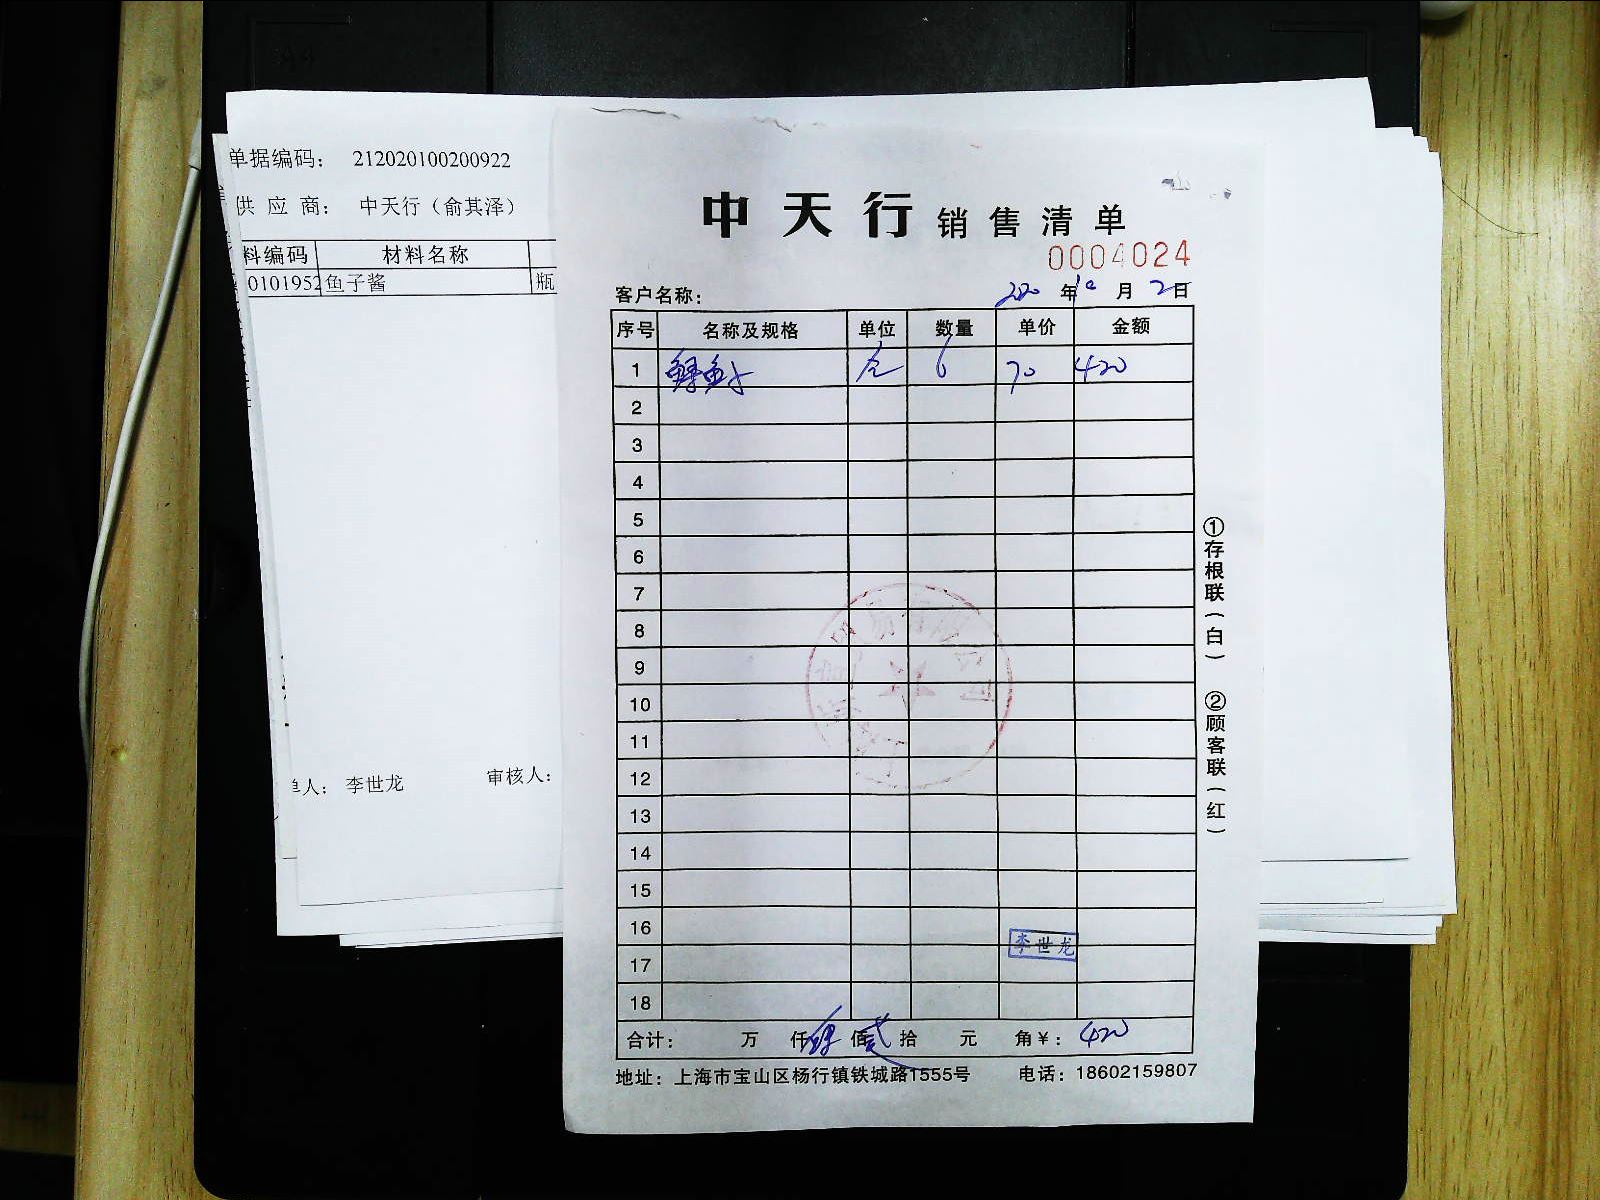 单据编码： 212020100200922
供 应 商： 中天行（俞其泽）
料编码 材料名称
0101952 鱼子酱 瓶
单人： 李世龙 审核人：
中天行 销售清单
0004024
客户名称： 2020 年 10 月 2 日
序号 名称及规格 单位 数量 单价 金额
1 6 70 420
2
3
4
5
6
7
8
9
10
11
12
13
14
15
16
李世龙
17
18
合计： 万 仟 肆 佰 贰 拾 元 角 ¥： 420
地址：上海市宝山区杨行镇铁城路1555号 电话：18602159807
①存根联（白） ②顾客联（红）